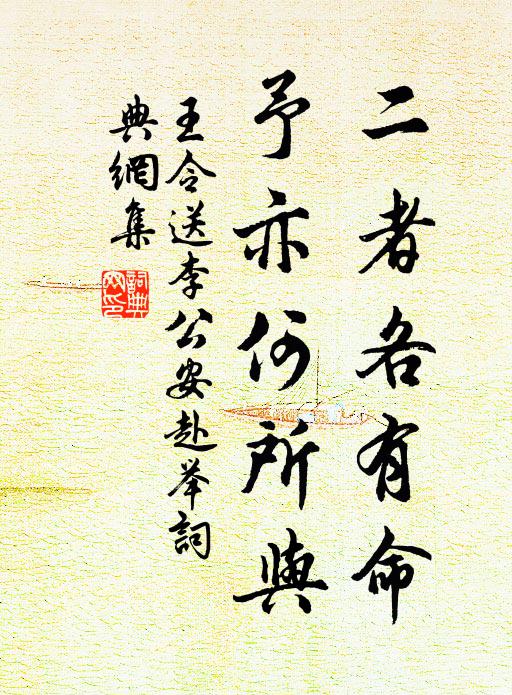 二者各有命
予亦何所與
王令送李公安赴举詞
典網集
詞典网印